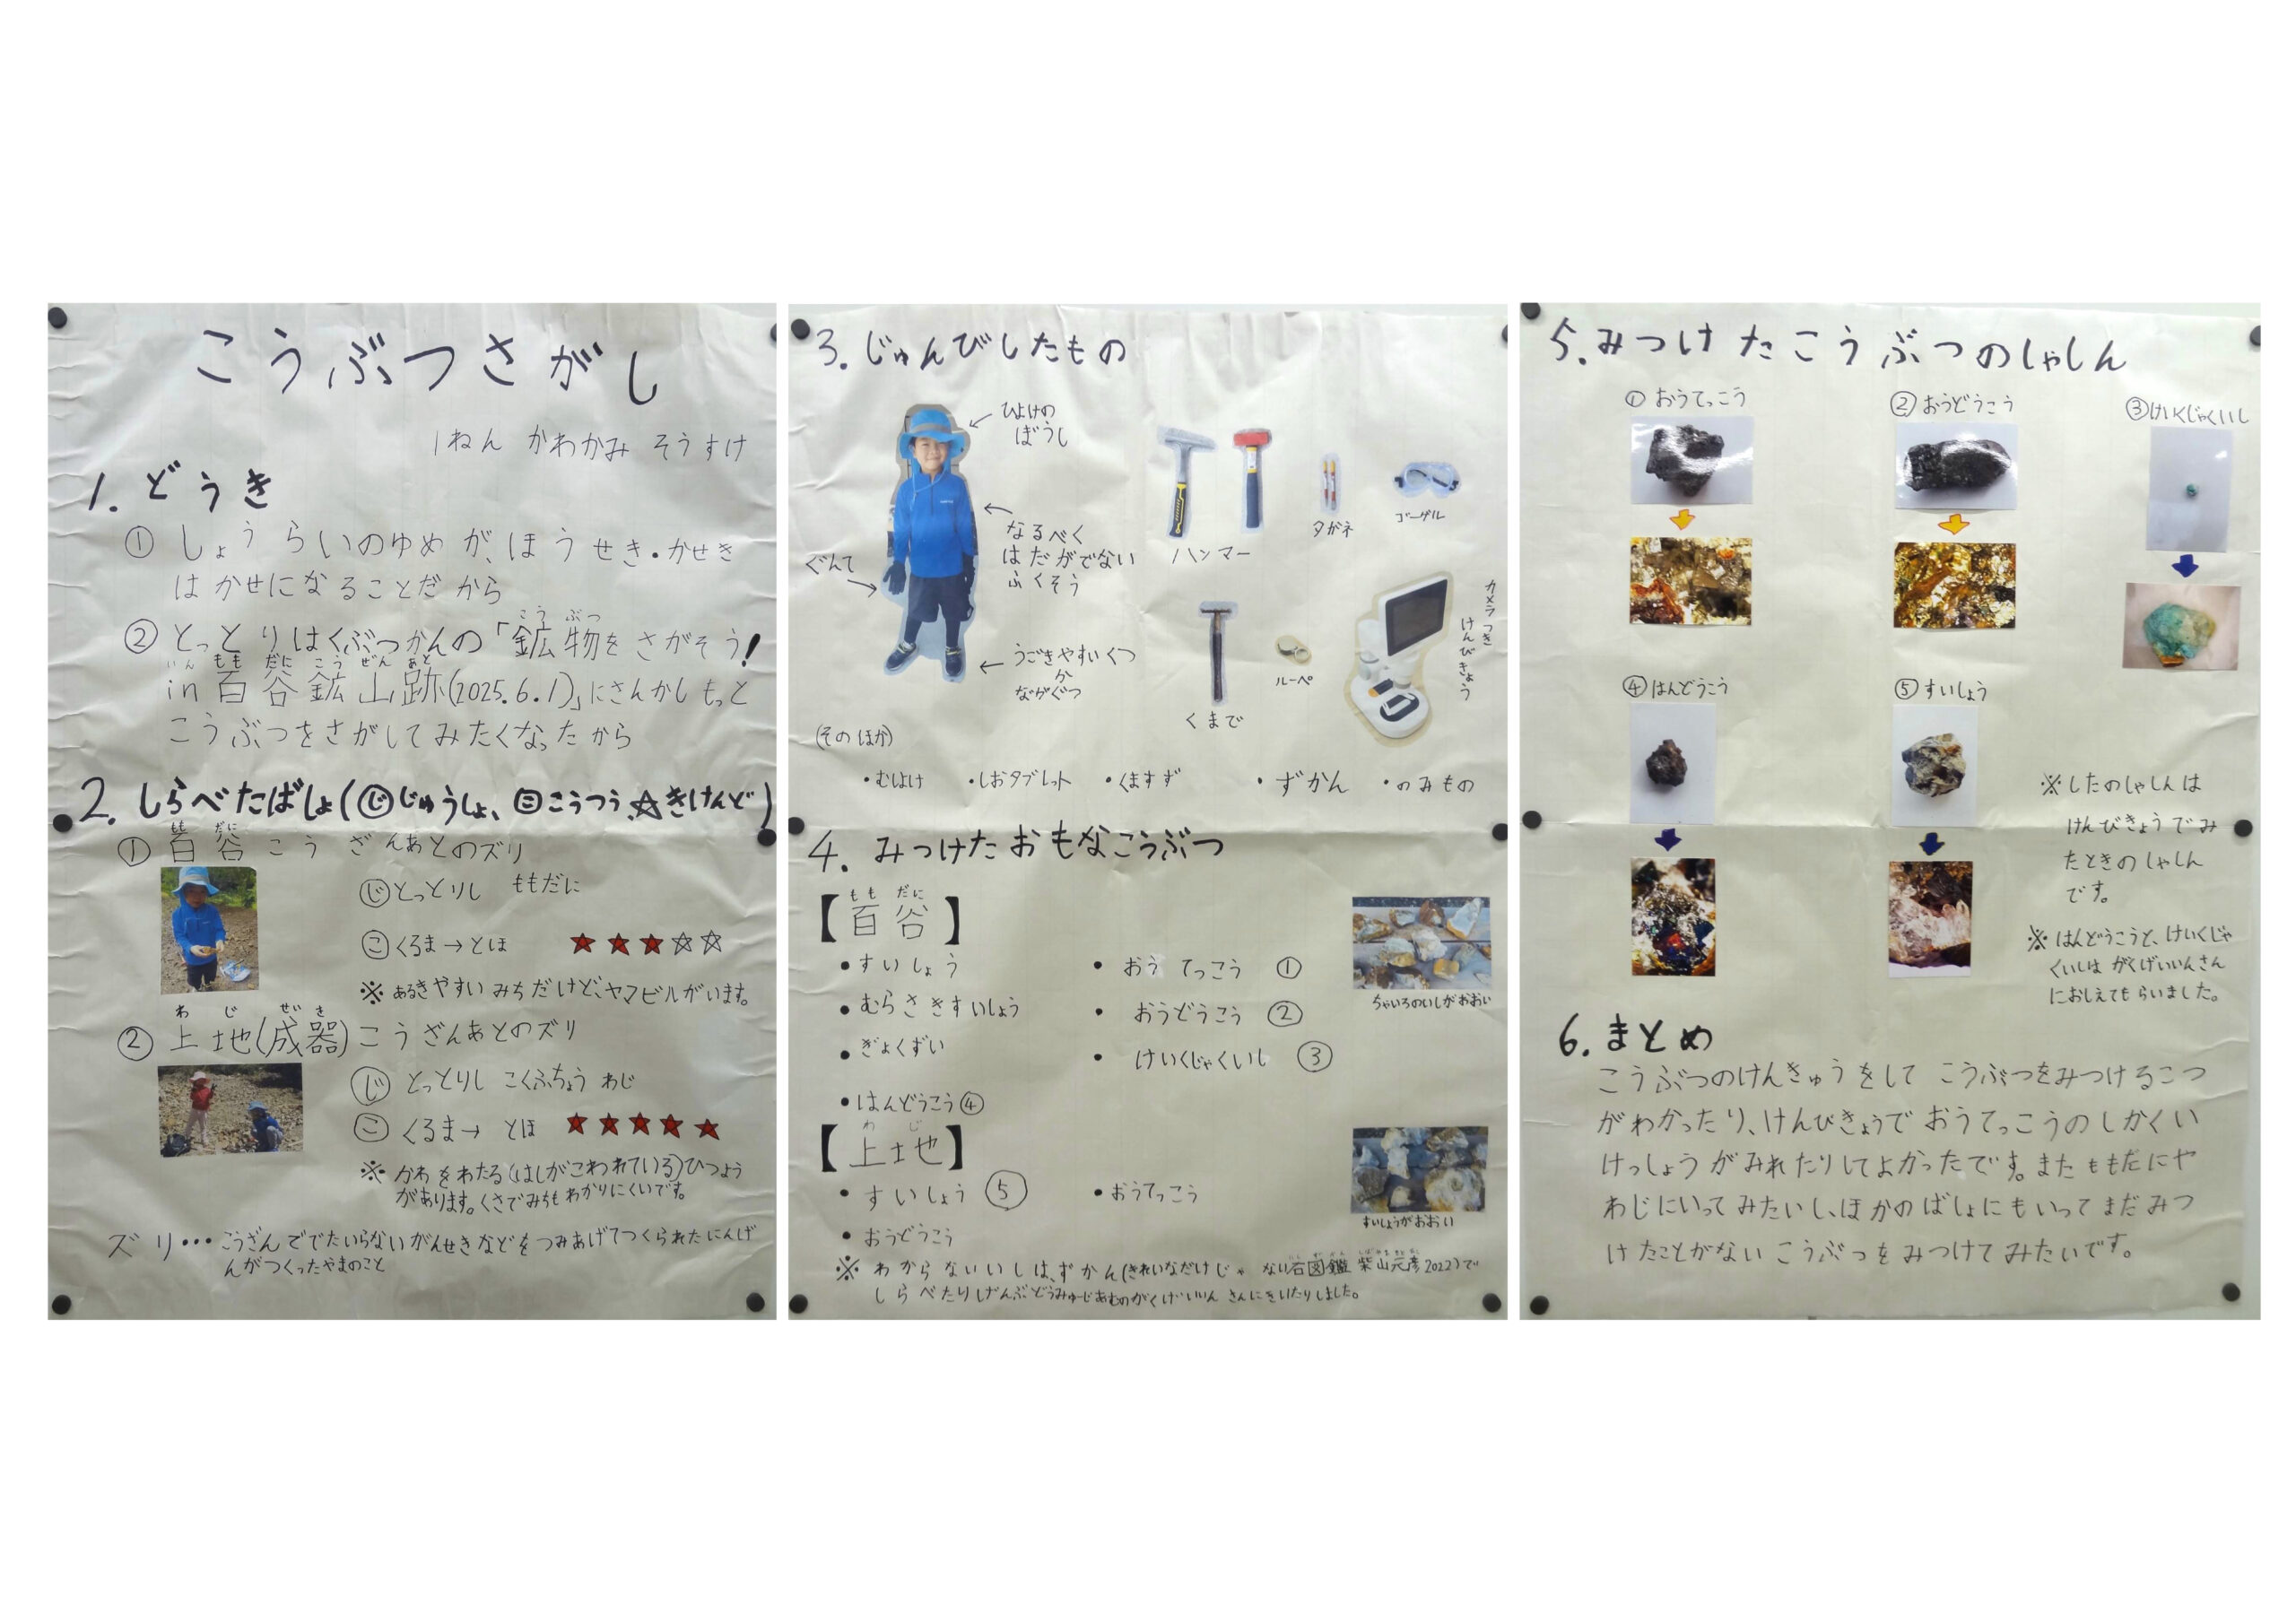 こうぶつさがし
1ねん かわかみ そうすけ
1. どうき
① しょうらいのゆめが、ほうせき・かせき
はかせになることだから
こう ぶつ
② とっとりはくぶつかんの「鉱物をさがそう!
いん もも だに こう ざん あと
in 百谷鉱山跡(2025.6.1)」にさんかしもっと
こうぶつをさがしてみたくなったから
2. しらべたばしょ(じじゅうしょ、ここうつう、☆きけんど)
もも だに
① 百谷こうざんあとのズリ
じ とっとりし ももだに
こ くるま→とほ ★★★☆☆
※ あるきやすいみちだけど、ヤマビルがいます。
わ じ せい き
② 上地(成器)こうざんあとのズリ
じ とっとりし こくふちょう わじ
こ くるま→ とほ ★★★★★
※ かわをわたる(はしがこわれている)ひつよう
があります。くさでみちもわかりにくいです。
ズリ・・・こうざんででたいらないがんせきなどをつみあげてつくられたにんげ
んがつくったやまのこと
3. じゅんびしたもの
ひよけの
ぼうし
なるべく
はだがでない
ふくそう
ぐんて
うごきやすいくつ
か
ながぐつ
ハンマー
タガネ
ゴーグル
くまで
ルーペ
カメラつき
けんびきょう
(そのほか)
・むしよけ ・しおタブレット ・くますず ・ずかん ・のみもの
4. みつけたおもなこうぶつ
もも だに
【百谷】
・すいしょう ・おうてっこう ①
・むらさきすいしょう ・おうどうこう ②
・ぎょくずい ・けいくじゃくいし ③
・はんどうこう④
ちゃいろのいしがおおい
わ じ
【上地】
・すいしょう ⑤ ・おうてっこう
・おうどうこう
すいしょうがおおい
※ わからないいしは、ずかん(きれいなだけじゃない石図鑑 柴山元彦2022)で
しらべたりげんぶどうみゅーじあむのがくげいいんさんにきいたりしました。
5. みつけたこうぶつのしゃしん
① おうてっこう
② おうどうこう
③けいくじゃくいし
④はんどうこう
⑤すいしょう
※したのしゃしんは
けんびきょうでみ
たときのしゃしん
です。
※はんどうこうと、けいくじゃ
くいしは がくげいいんさん
におしえてもらいました。
6. まとめ
こうぶつのけんきゅうをして こうぶつをみつけるこつ
がわかったり、けんびきょうで おうてっこうのしかくい
けっしょうがみれたりしてよかったです。またももだにや
わじにいってみたいし、ほかのばしょにもいってまだみつ
けたことがない こうぶつをみつけてみたいです。